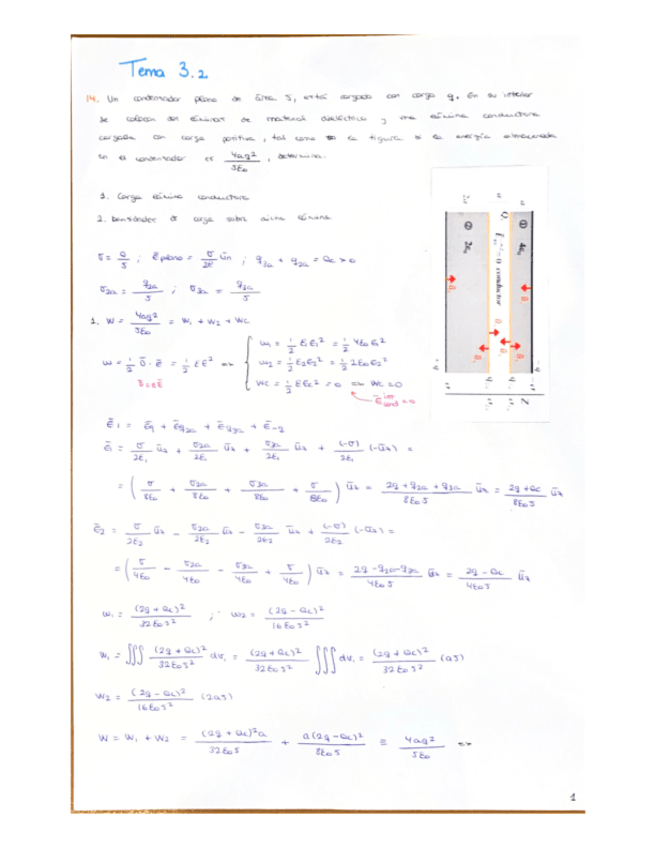 Tema 3.2
14. Un condensador plano de área S, está cargado con carga q. En su interior
se colocan dos láminas de material dieléctrico y una lámina conductora
cargada con carga positiva, tal como la figura si la energía almacenada
en el condensador es 4aq²/3ε₀, determina.
1. Carga lámina conductora
2. densidades de carga sobre dicha lámina
σ = Q/S ; E plano = σ/2ε ūn ; q₂ₐ + q₃ₐ = Qc > 0
σ₂ₐ = q₂ₐ/S ; σ₃ₐ = q₃ₐ/S
1. W = 4aq²/3ε₀ = W₁ + W₂ + Wc
w = 1/2 D̄ · ē = 1/2 εE² =>
D̄ = εĒ
w₁ = 1/2 ε₁E₁² = 1/2 4ε₀E₁²
w₂ = 1/2 ε₂E₂² = 1/2 2ε₀E₂²
wc = 1/2 εEc² = 0 => Wc = 0
Ē int cond = 0
① 4ε₀
conductor
② 2ε₀
Ē₁ = Ēq + Ēq₂ₐ + Ēq₃ₐ + Ē₋q
Ē₁ = σ/2ε₁ ūz + σ₂ₐ/2ε₁ ūz + σ₃ₐ/2ε₁ ūz + (-σ)/2ε₁ (-ūz) =
= ( σ/8ε₀ + σ₂ₐ/8ε₀ + σ₃ₐ/8ε₀ + σ/8ε₀ ) ūz = 2q + q₂ₐ + q₃ₐ/8ε₀S ūz = 2q + Qc/8ε₀S ūz
Ē₂ = σ/2ε₂ ūz - σ₂ₐ/2ε₂ ūz - σ₃ₐ/2ε₂ ūz + (-σ)/2ε₂ (-ūz) =
= ( σ/4ε₀ - σ₂ₐ/4ε₀ - σ₃ₐ/4ε₀ + σ/4ε₀ ) ūz = 2q - q₂ₐ - q₃ₐ/4ε₀S ūz = 2q - Qc/4ε₀S ūz
w₁ = (2q + Qc)²/32ε₀S² ; w₂ = (2q - Qc)²/16ε₀S²
W₁ = ∭ (2q + Qc)²/32ε₀S² dv₁ = (2q + Qc)²/32ε₀S² ∭ dv₁ = (2q + Qc)²/32ε₀S² (aS)
W₂ = (2q - Qc)²/16ε₀S² (2aS)
W = W₁ + W₂ = (2q + Qc)²a/32ε₀S + a(2q - Qc)²/8ε₀S ≡ 4aq²/5ε₀ =>
1